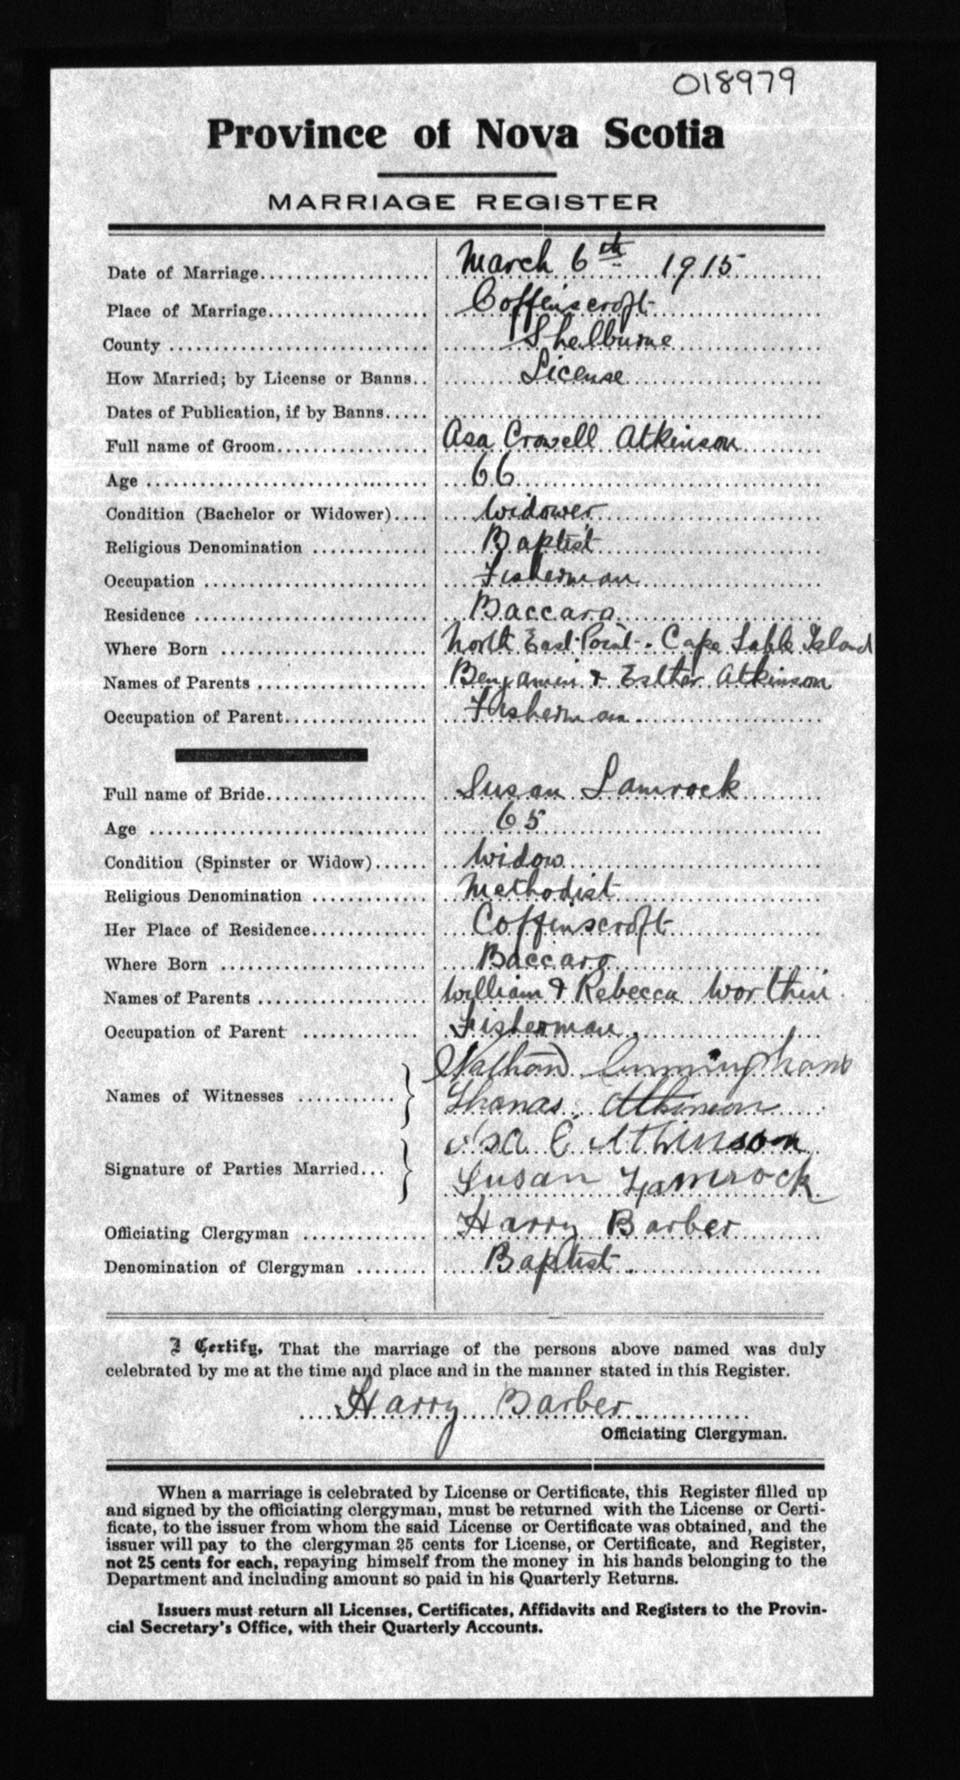 018979
Province of Nova Scotia
MARRIAGE REGISTER
Date of Marriage.................. March 6th 1915
Place of Marriage.................. Coffinscroft
County .................. Shelburne
How Married; by License or Banns.. License
Dates of Publication, if by Banns.....
Full name of Groom.................. Asa Crowell Atkinson
Age .................. 66
Condition (Bachelor or Widower).... Widower
Religious Denomination ............. Baptist
Occupation .................. Fisherman
Residence .................. Baccaro
Where Born .................. North East Point - Cape Sable Island
Names of Parents .................. Benjamin & Esther Atkinson
Occupation of Parent.................. Fisherman
Full name of Bride.................. Susan Lamrock
Age .................. 65
Condition (Spinster or Widow)...... Widow
Religious Denomination ............. Methodist
Her Place of Residence............. Coffinscroft
Where Born .................. Baccaro
Names of Parents .................. William & Rebecca Worthin
Occupation of Parent ............. Fisherman
Names of Witnesses ........... } Nathan Cunningham
Thomas Atkinson
Signature of Parties Married... } Asa C Atkinson
Susan Lamrock
Officiating Clergyman ............. Harry Barber
Denomination of Clergyman ........ Baptist.
I Certify, That the marriage of the persons above named was duly
celebrated by me at the time and place and in the manner stated in this Register.
Harry Barber
Officiating Clergyman.
When a marriage is celebrated by License or Certificate, this Register filled up
and signed by the officiating clergyman, must be returned with the License or Certi-
ficate, to the issuer from whom the said License or Certificate was obtained, and the
issuer will pay to the clergyman 25 cents for License, or Certificate, and Register,
not 25 cents for each, repaying himself from the money in his hands belonging to the
Department and including amount so paid in his Quarterly Returns.
Issuers must return all Licenses, Certificates, Affidavits and Registers to the Provin-
cial Secretary's Office, with their Quarterly Accounts.